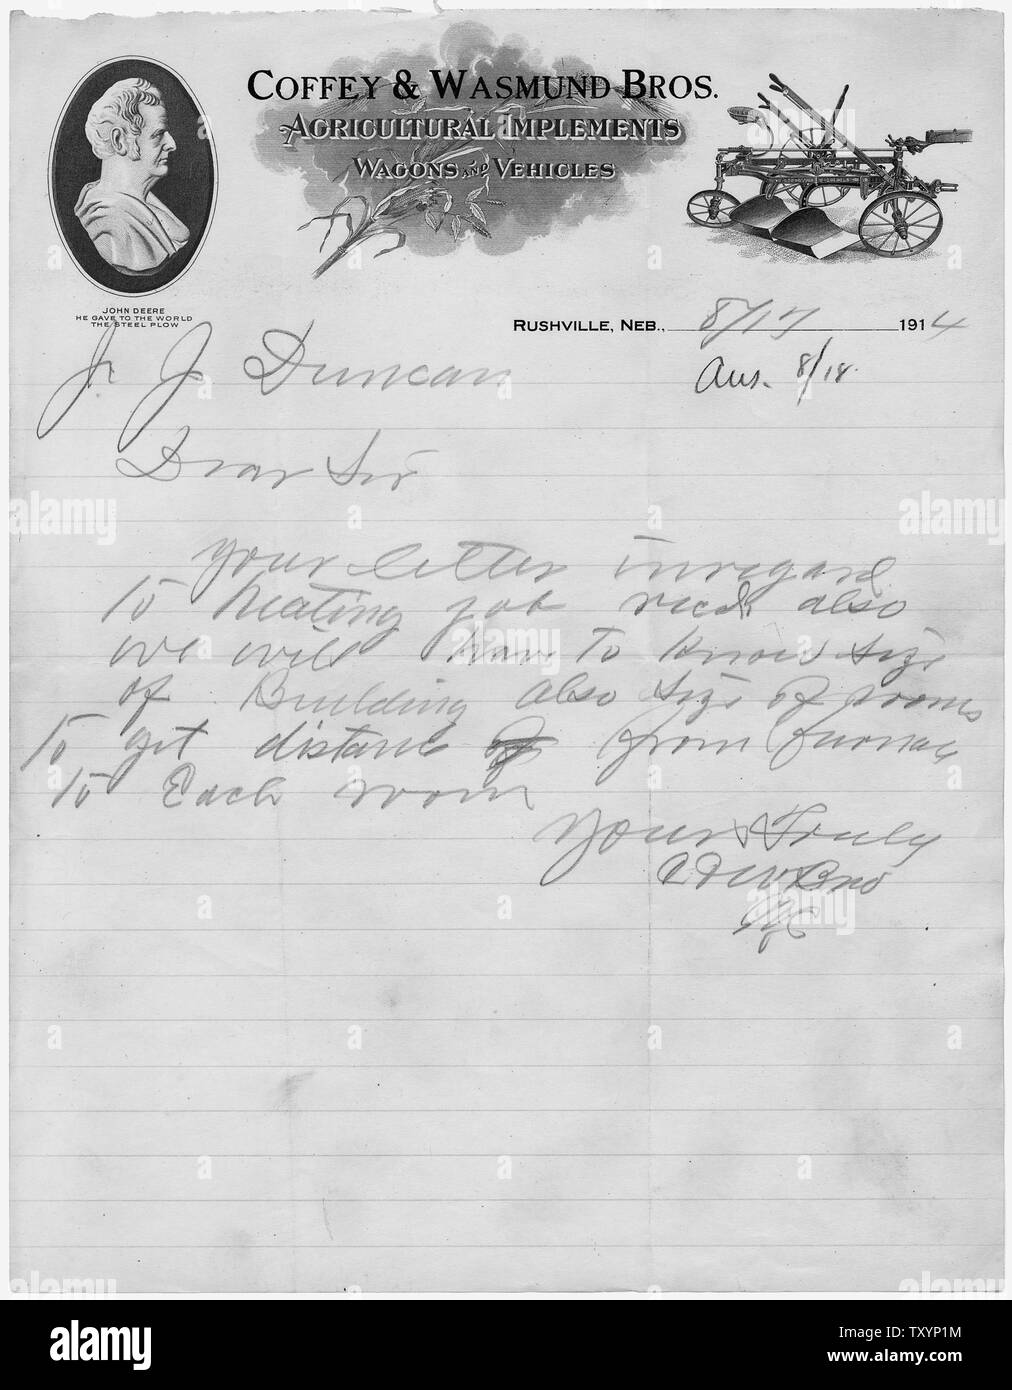 COFFEY & WASMUND BROS.
AGRICULTURAL IMPLEMENTS
WAGONS AND VEHICLES
JOHN DEERE
HE GAVE TO THE WORLD
THE STEEL PLOW
RUSHVILLE, NEB., 8/17 1914
Ans. 8/18.
J. J. Duncan
Dear Sir
Your letter in regard
to heating job recd. also
we will have to know size
of Building also size of rooms
to get distance from furnace
to Each room
Yours Truly
Bro
alamy
alamy
alamy
Image ID: TXYP1M
www.alamy.com